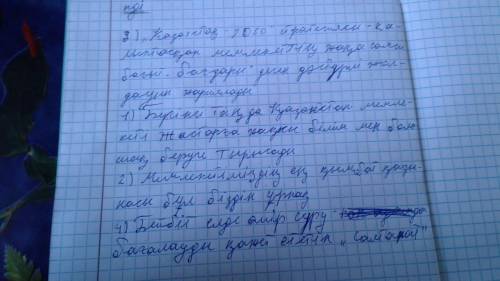 3) „Қазақстан - 2050" стратегиясы - қа-
лыптасқан мемлекеттің жаңа саяси
бағыты дәуірдің жол-
дауын жариялады
1) Бүгінгі таңда Қазақстан мемле-
кеті жастарға жақсы білім мен бола-
шақ беруге тырысады
2) Мемлекетіміздің ең қымбат қазы-
насы бұл біздің ұрпақ
4) Бейбіт елде өмір сүру
бағалауды қажет ететін „